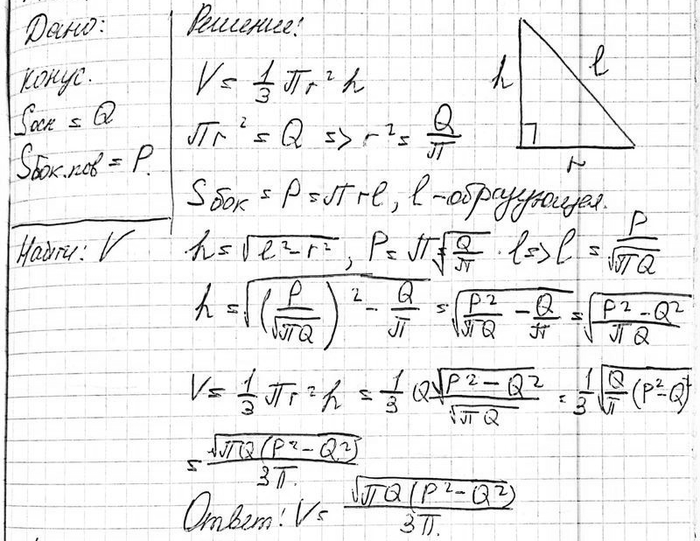 Дано:
конус.
Sосн = Q
Sбок.пов = P.
Найти: V
Решение!
V = 1/3 πr²h
πr² = Q => r² = Q/π
h
l
r
Sбок = P = πrl, l - образующая.
h = √(l²-r²), P = π√(Q/π) · l => l = P/√(πQ)
h = √((P/√(πQ))² - Q/π) = √(P²/(πQ) - Q/π) = √((P²-Q²)/(πQ))
V = 1/3 πr²h = 1/3 Q √(P²-Q²)/√(πQ) = 1/3 √(Q/π (P²-Q²))
= √(πQ(P²-Q²))/3π.
Ответ! V = √(πQ(P²-Q²))/3π.